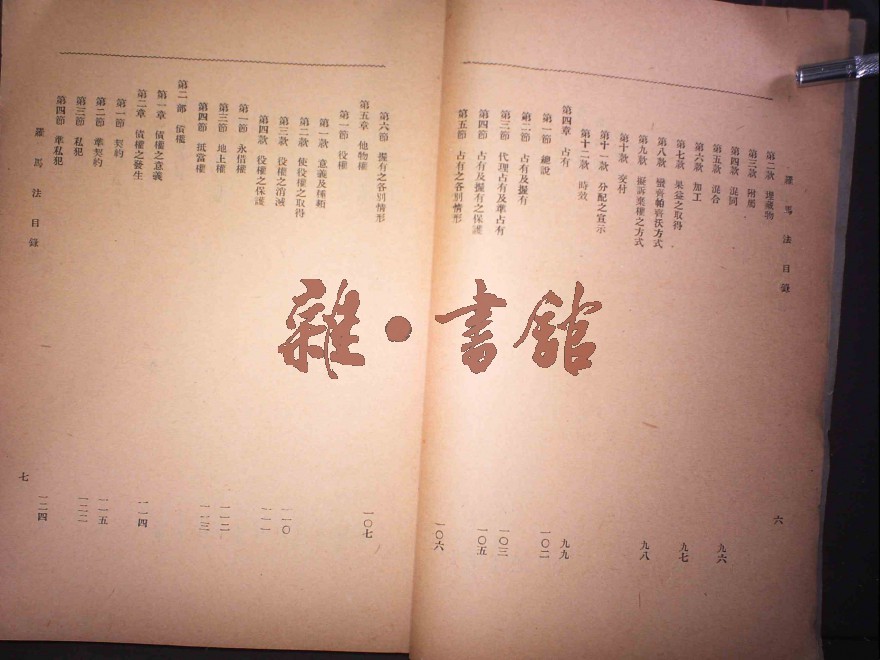 羅馬法目錄
六
第二款 埋藏物
第三款 附屬
第四款 混同
第五款 混合
第六款 加工 九六
第七款 果益之取得
第八款 蠻齊帕齊沃方式 九七
第九款 擬訴棄權之方式
第十款 交付 九八
第十一款 分配之宣示
第十二款 時效
第四章 占有 九九
第一節 總說
第二節 占有及握有 一〇二
第三節 代理占有及準占有 一〇三
第四節 占有及握有之保護 一〇五
第五節 占有之各別情形 一〇六
第六節 握有之各別情形
第五章 他物權 一〇七
第一節 役權
第一款 意義及種類
第二款 使役權之取得
第三款 役權之消滅 一一〇
第四款 役權之保護 一一一
第一節 永借權
第三節 地上權 一一二
第四節 抵當權 一一三
第二部 債權
第一章 債權之意義
第二章 債權之發生 一一四
第一節 契約
第二節 準契約 一一五
第三節 私犯 一二二
第四節 準私犯 一二四
羅馬法目錄
七
雜·書館